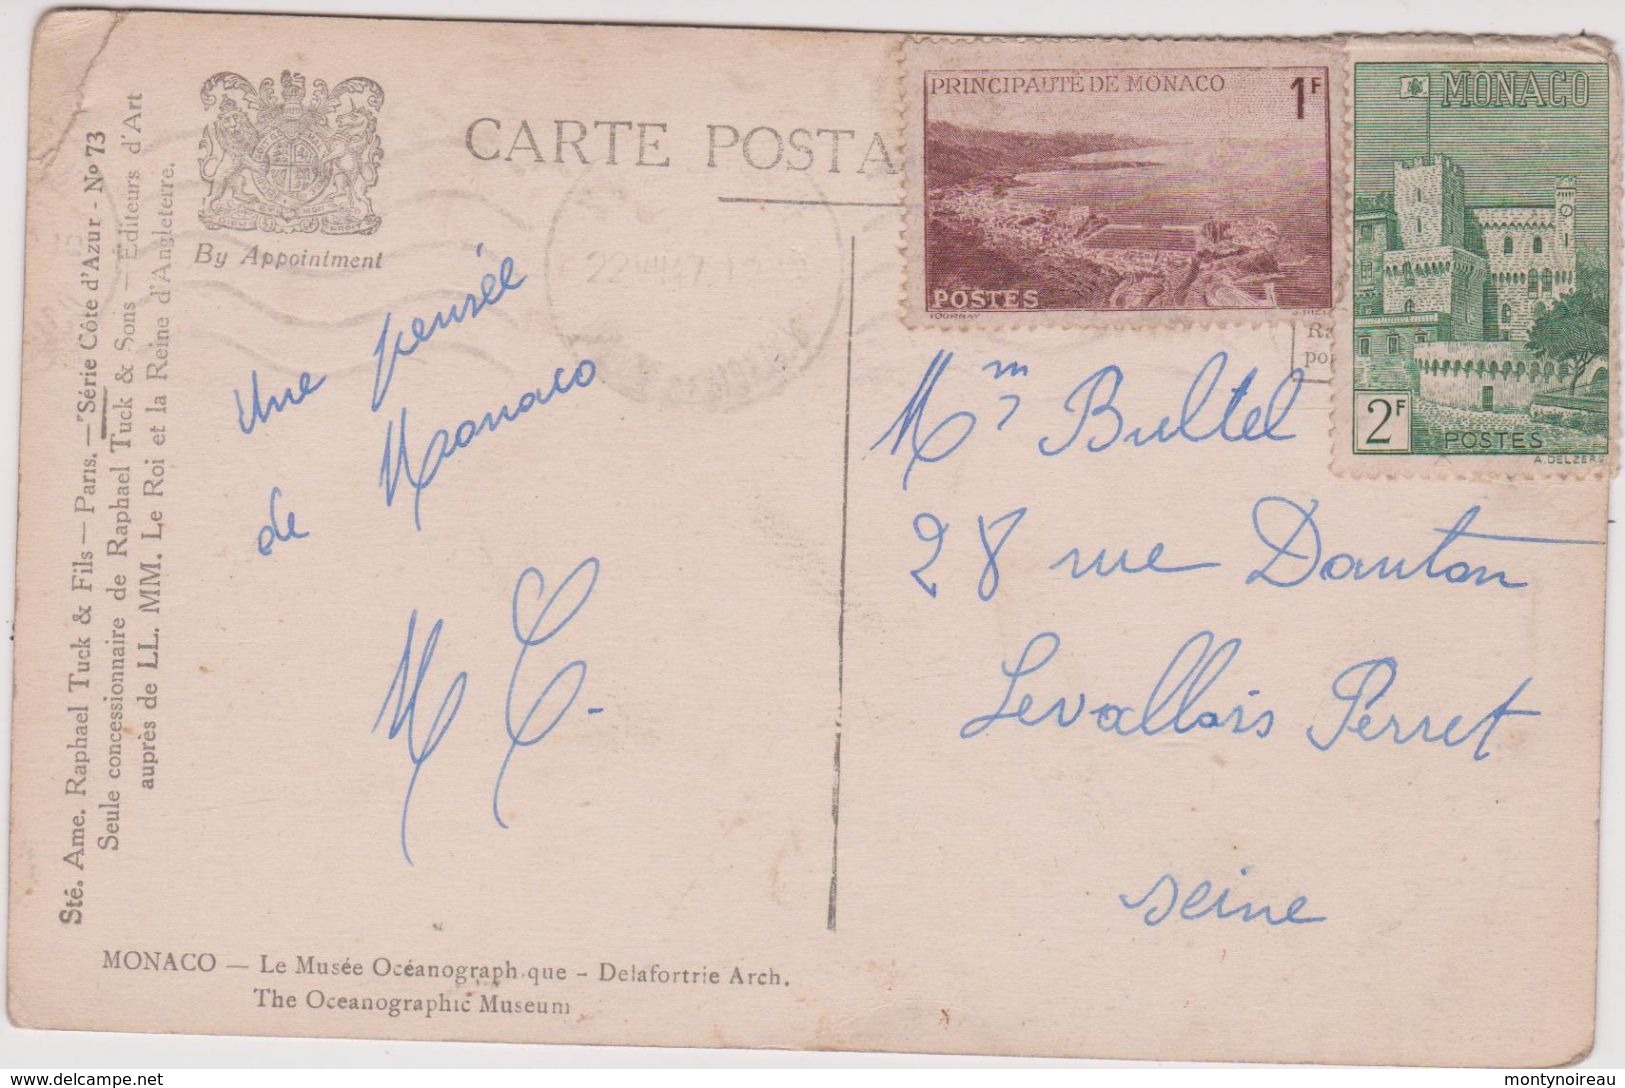 CARTE POSTA
By Appointment
PRINCIPAUTÉ DE MONACO
1F
POSTES
TOURNAY
MONACO
2F
POSTES
A. DELZERS
Sté. Ame. Raphael Tuck & Fils — Paris. — "Série Côte d'Azur - No 73
Seule concessionnaire de Raphael Tuck & Sons — Éditeurs d'Art
auprès de LL. MM. Le Roi et la Reine d'Angleterre.
Une pensée
de Monaco
M C.
Mm Bultel
28 rue Danton
Levallois Perret
Seine
MONACO — Le Musée Océanograph.que - Delafortrie Arch.
The Oceanographic Museum
www.delcampe.net
montynoireau